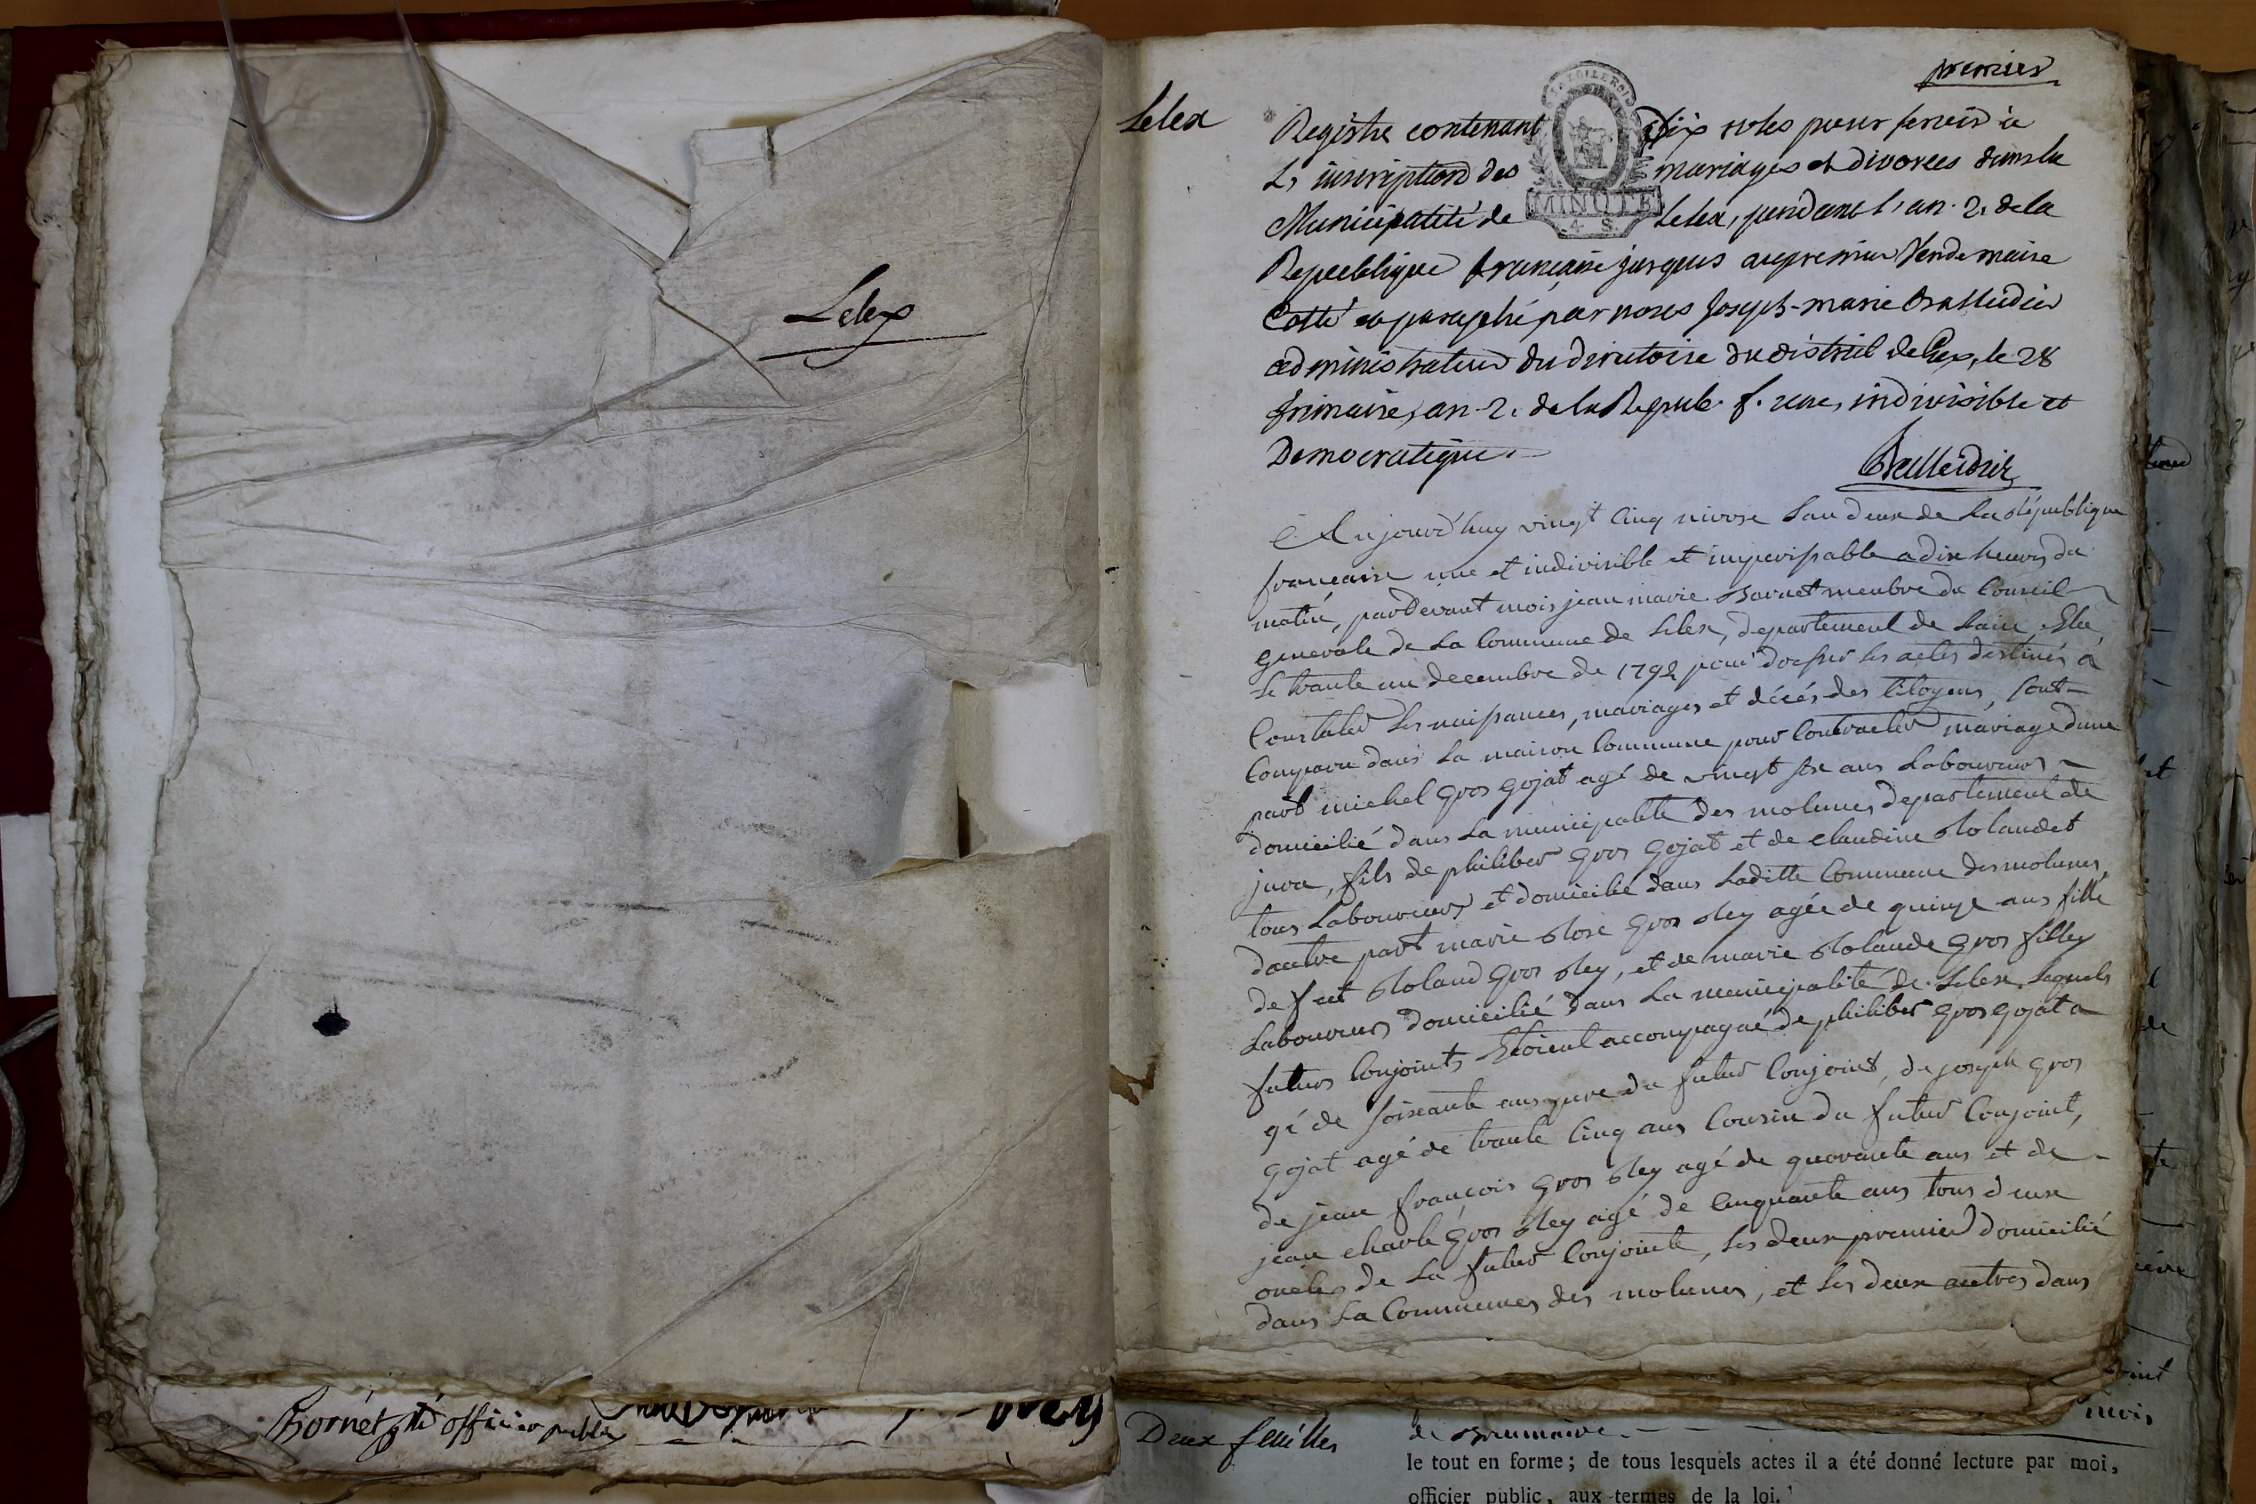 Lelex
Bornet ptd officier public
premier
Lelex
LA LOI LE ROI
MINUTE
4 S.
Registre contenant dix roles pour servir a
L'inscription des mariages et divorces dans la
Municipalité de Lelex, pendant l'an 2. de la
Republique française jusques au premier Vendemaire
Cotté et paraphé par nous Joseph-marie Balleidier
administrateur du directoire du district de Gex, le 28
frimaire, an 2. de la Repub. f. une, indivisible et
Democratique.
Balleidier
Aujourd'huy vingt cinq nivose L'an deux de La République
française une et indivisible et imperissable a dix heures du
matin, pardevant mois jean marie Bornet menbre du Conseil
generale de La Commune de Lelex, departement de Lain, Elu
Le trante un decembre de 1792 pour dresser Les actes destinés à
Constater Les naissances, mariages et décés des Citoyens, sont
Comparu dans La maison Commune pour Contracter mariage dune
part michel gros gojat agé de vingt six ans Laboureurs
domicilié dans La municipalité des molunes departement de
jura, fils de philiber gros gojat et de claudine Rolandet
tous Laboureurs et domicilié dans Laditte Commune des molunes,
dautre part marie Rose gros Rey agée de quinze ans fille
de feut Roland gros Rey, et de marie Rolande gros filley
Laboureurs domicilié dans La municipalité de Lelex, Lequels
futurs Conjoints Etoient accompagné de philiber gros gojat a
gé de soixante ans pere du futur Conjoint, de joseph gros
gojat agé de trante Cinq ans Cousin du futur Conjoint,
de jean françois gros Rey agé de quarante ans et de
jean charle gros Rey agé de Cinquante ans tous deux
oncles de La futur Conjointe, Les deux premier domicilié
dans La Communes des molunes, et Les deux autres dans
Deux feuilles
de Brumaire.
mois
le tout en forme; de tous lesquels actes il a été donné lecture par moi,
officier public, aux termes de la loi.